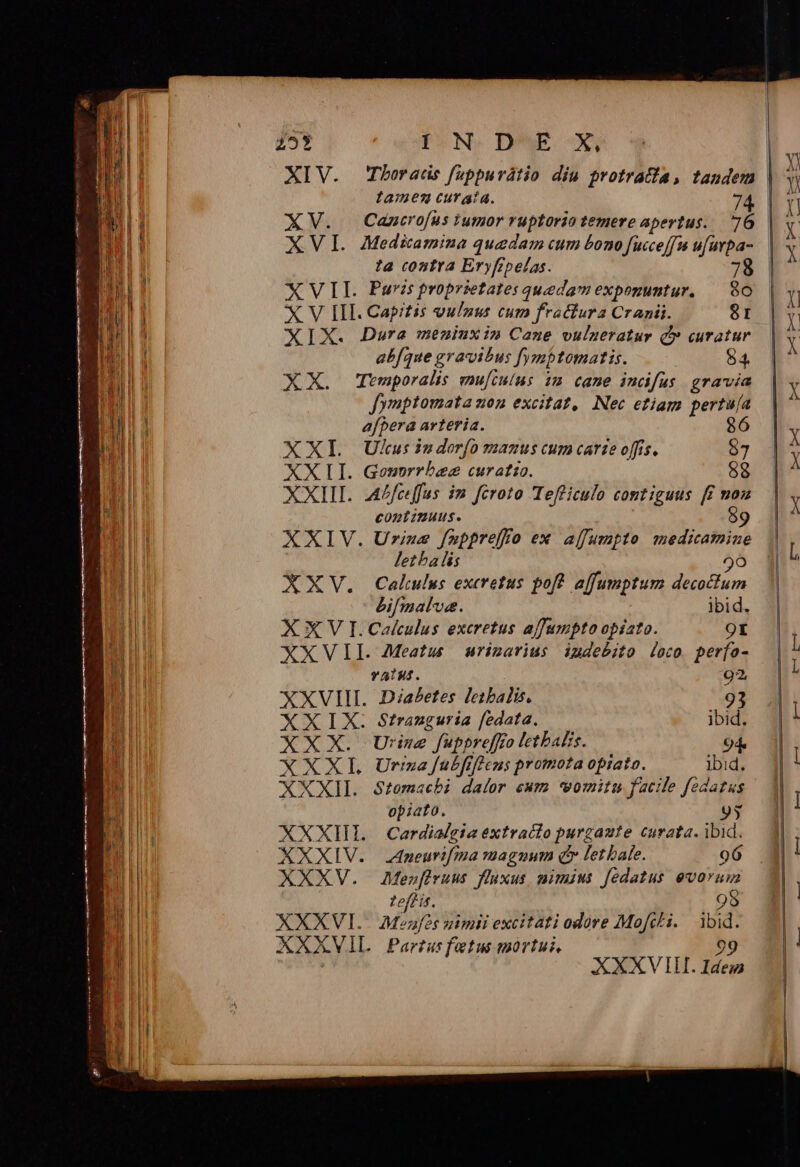 252 I N D E X.
XIV. Thoracis ſuppurátio diu protracta, tandem
tamen curata. 74
XV. Cancroſus tumor ruptorio temere apertus. 76
XVI. Medicamina quædam cum bono ſucceſſu uſurpa-
ta contra Eryſipelas. 78
XVII. Puris proprietates quædam exponuntur. 80
XVIII. Capitis vulnus cum fractura Cranii. 81
XIX. Dura meninx in Cane vulneratur & curatur
abſque gravibus ſymptomatis. 84
XX. Temporalis muſculus in cane inciſus gravia
ſymptomata non excitat, Nec etiam pertuſa
aſpera arteria. 86
XXI. Ulcus in dorſo manus cum carie oſſis. 87
XXII. Gonorrheæ curatio. 88
XXIII. Abſceſſus in ſcroto Teſticulo contiguus ſi non
continuus. 89
XXIV. Urinæ ſuppreſſio ex aſſumpto medicamine
lethalis 90
XXV. Calculus excretus poſt aſſumptum decoctum
biſmalvæ. ibid.
XXVI. Calculus excretus aſſumpto opiato. 91
XXVII. Meatus urinarius indebito loco perfo-
ratus. 92
XXVIII. Diabetes lethalis. 93
XXIX. Stranguria ſedata. ibid.
XXX. Urinæ ſuppreſſio lethalis. 94
XXXI. Urina ſubſiſtens promota opiato. ibid.
XXXII. Stomachi dalor cum vomitu facile ſedatus
opiato. 95
XXXIII. Cardialgia extracto purgante curata. ibid.
XXXIV. Aneuriſma magnum & lethale. 96
XXXV. Menſtruus fluxus nimius ſedatus ovorum
teſtis. 98
XXXVI. Menſes nimii excitati odore Moſchi. ibid.
XXXVII. Partus fœtus mortui. 99
XXXVIII. Idem